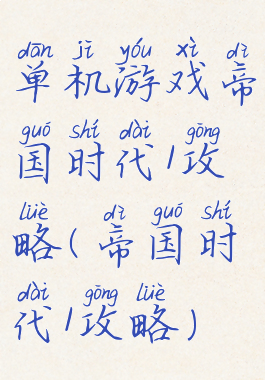 dān jī yóu xì dì
单机游戏帝
guó shí dài gōng
国时代/攻
lüè dì guó shí
略(帝国时
dài gōng lüè
代/攻略)